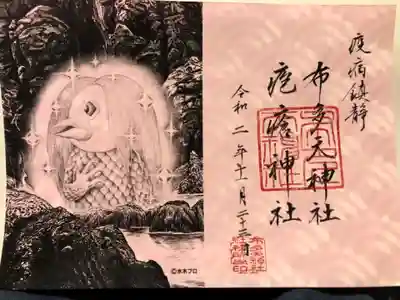 疫病鎮静
布多天神社
疱瘡神社
令和二年十一月二十二日
©水木プロ